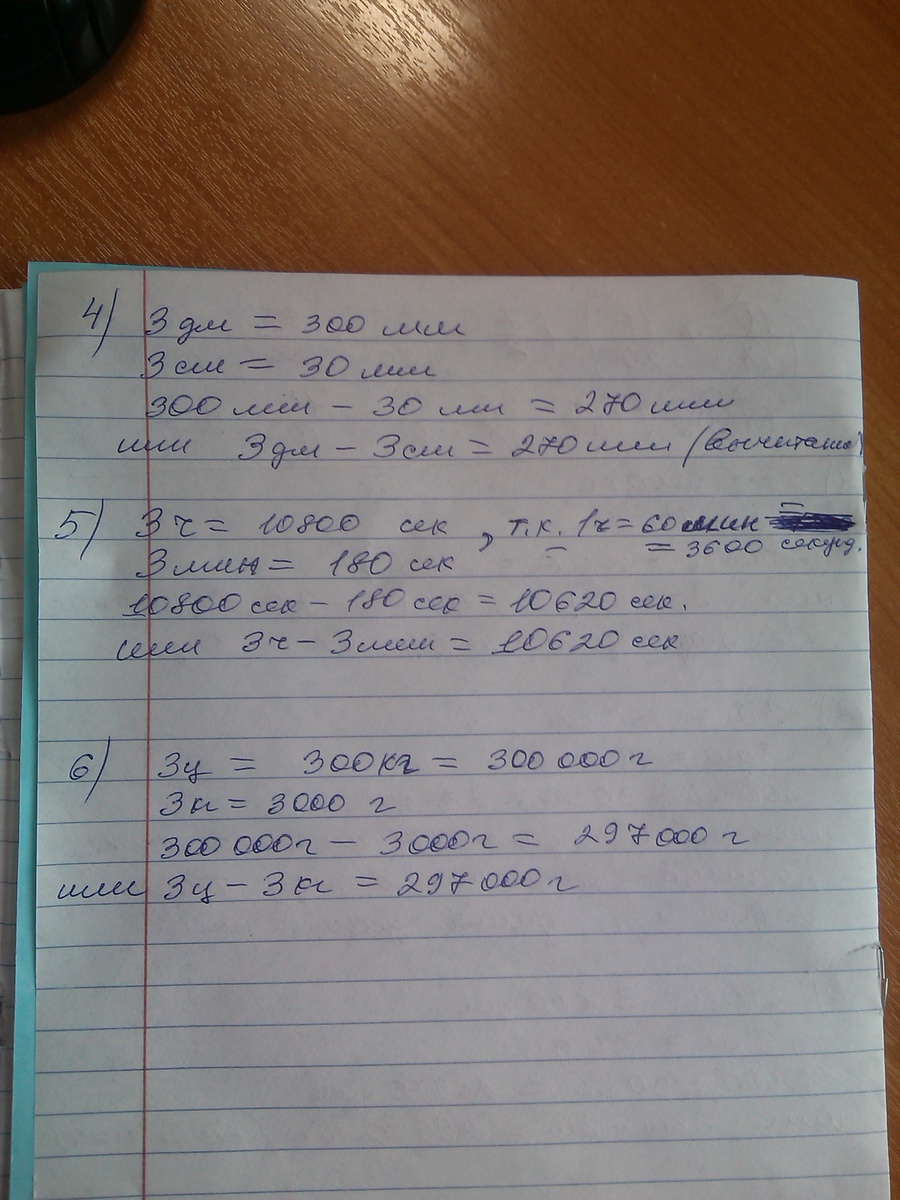 4) 3 дм = 300 мм
3 см = 30 мм
300 мм - 30 мм = 270 мм
или 3 дм - 3 см = 270 мм (вычитание)
5) 3 ч = 10800 сек, т.к. 1 ч = 60 мин =
= 3600 секунд.
3 мин = 180 сек
10800 сек - 180 сек = 10620 сек.
или 3 ч - 3 мин = 10620 сек
6) 3 ц = 300 кг = 300 000 г
3 кг = 3000 г
300 000 г - 3000 г = 297 000 г
или 3 ц - 3 кг = 297 000 г